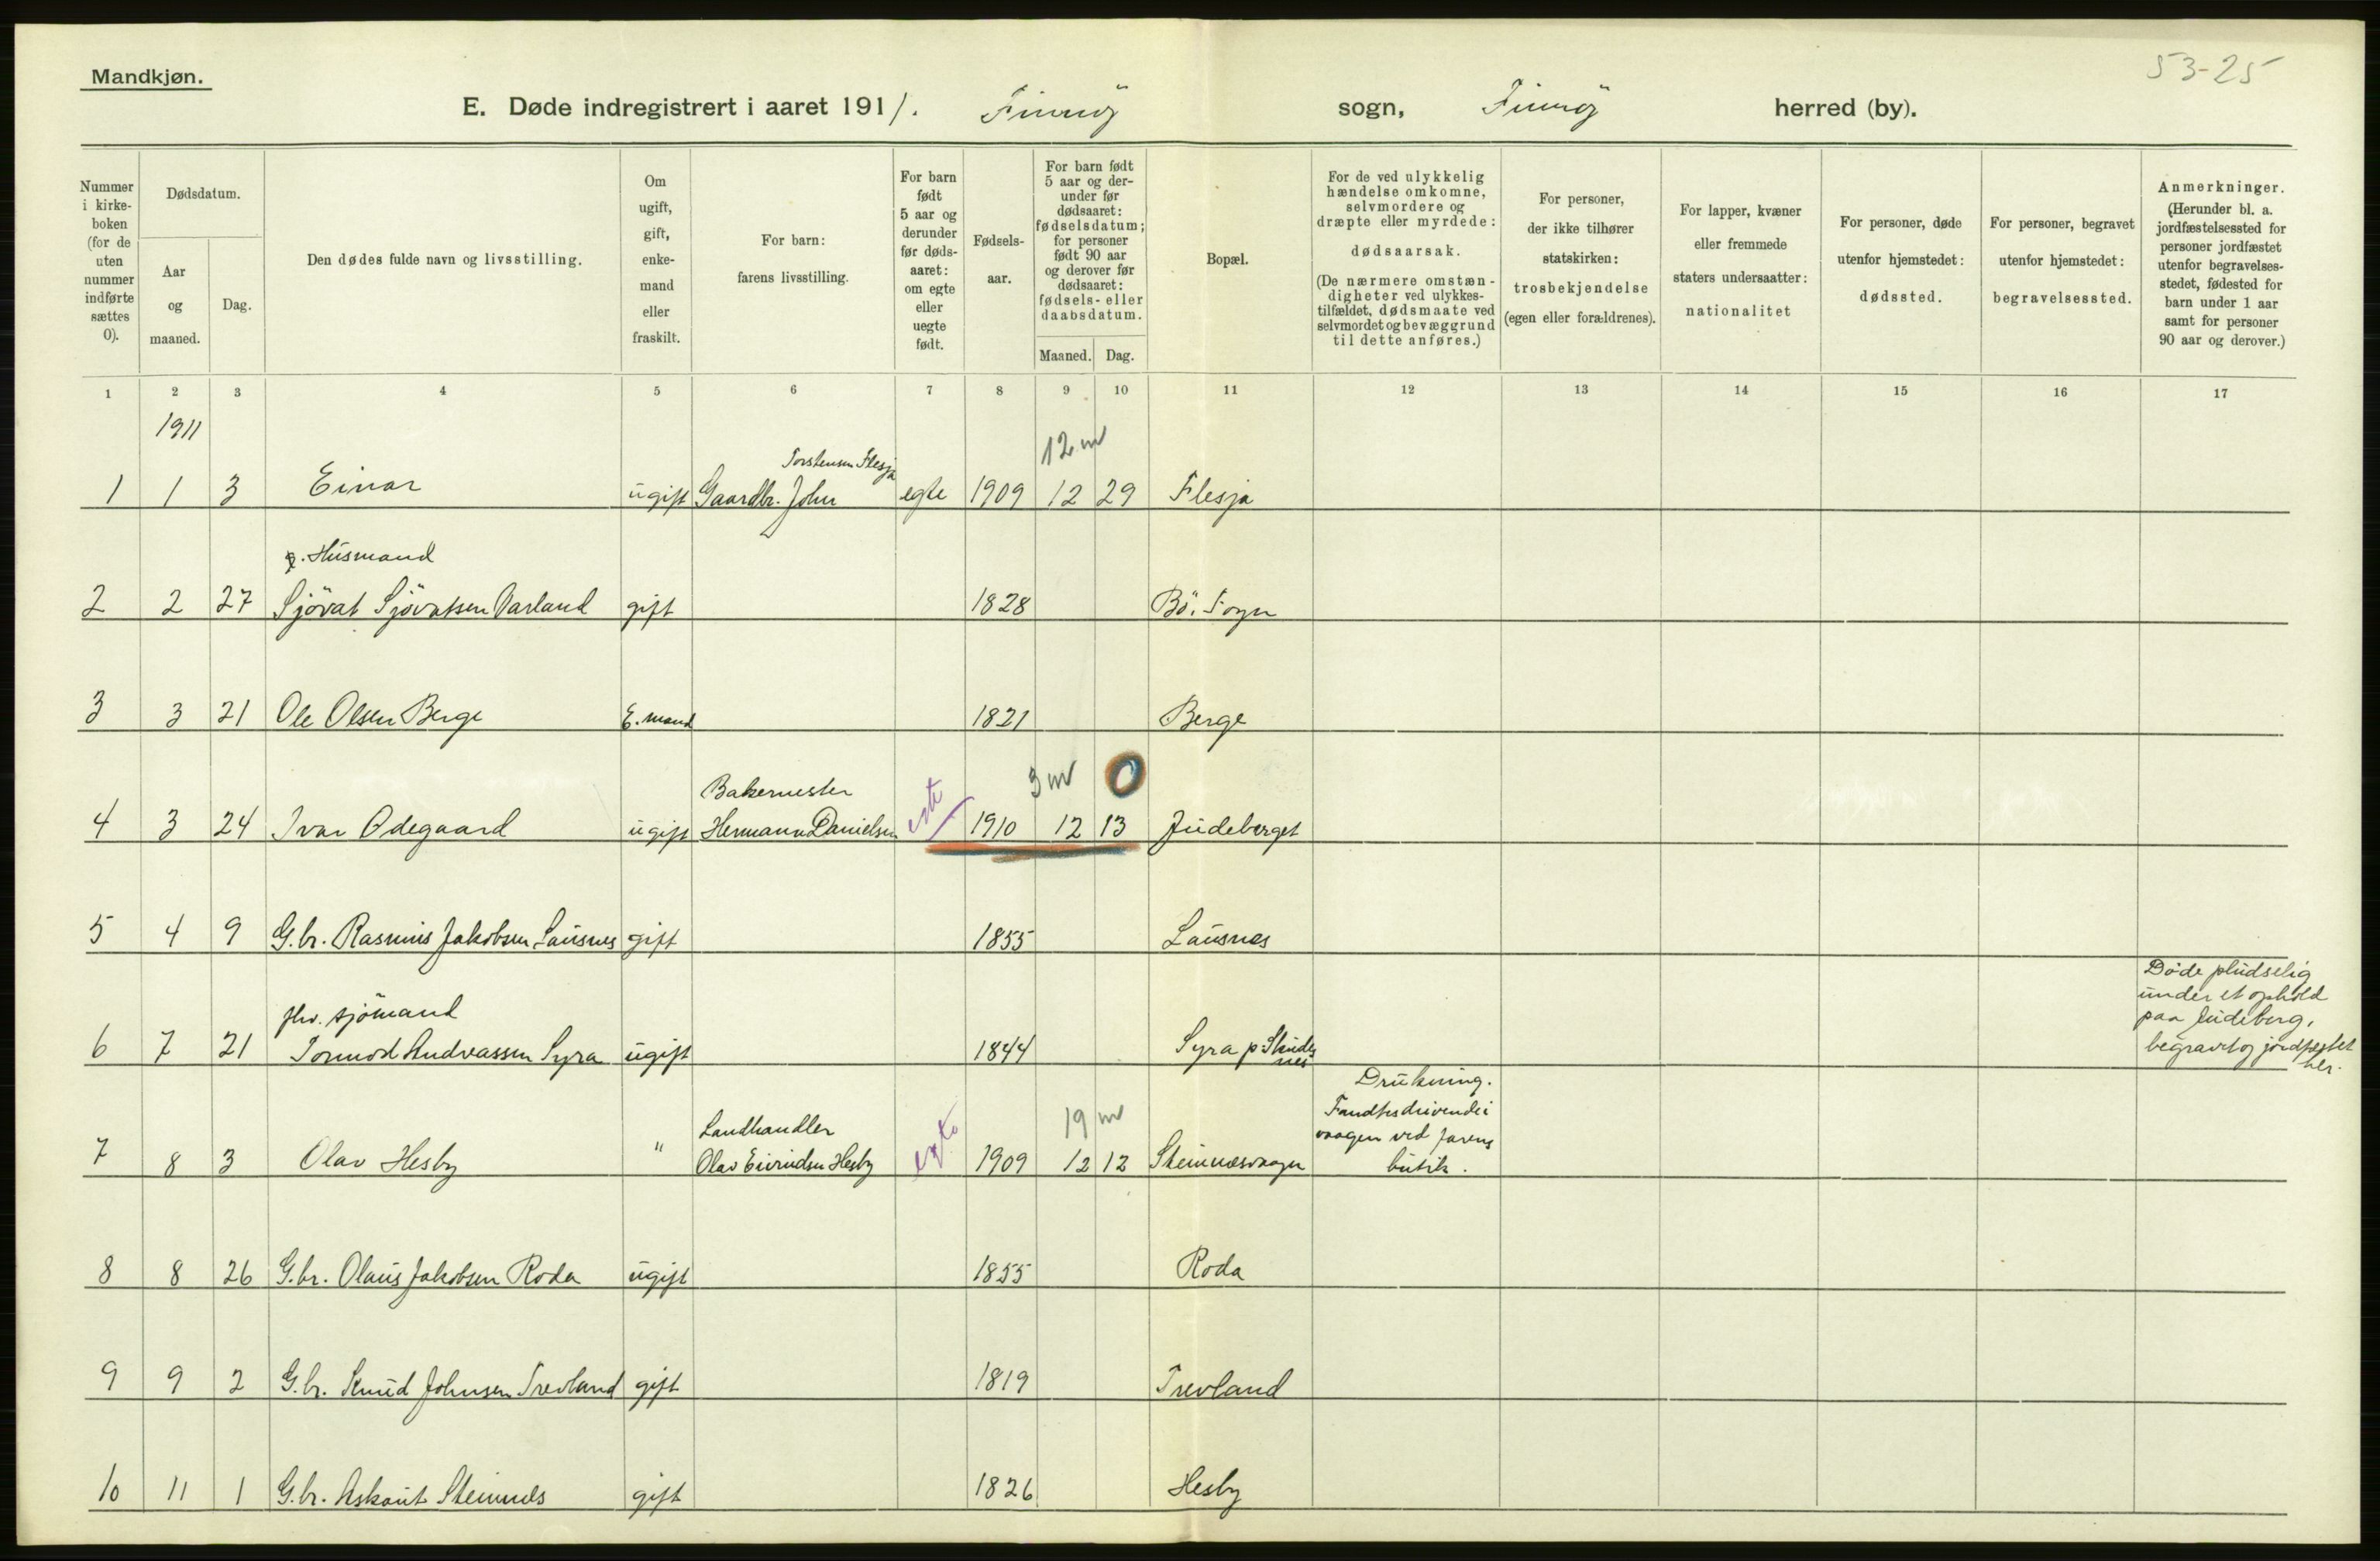 Mandkjøn.
53-25
E. Døde indregistrert i aaret 1911. Finnöy sogn, Finnöy herred (by).
Nummer i kirke-boken (for de uten nummer indførte sættes 0).
Dødsdatum.
Aar og maaned.
Dag.
Den dødes fulde navn og livsstilling.
Om ugift, gift, enke-mand eller fraskilt.
For barn: farens livsstilling.
For barn født 5 aar og derunder før døds-aaret: om egte eller uegte født.
Fødsels-aar.
For barn født 5 aar og der-under før dødsaaret: fødselsdatum; for personer født 90 aar og derover før dødsaaret: fødsels- eller daabsdatum.
Maaned. Dag.
Bopæl.
For de ved ulykkelig hændelse omkomne, selvmordere og dræpte eller myrdede: dødsaarsak.
(De nærmere omstæn-digheter ved ulykkes-tilfældet, dødsmaate ved selvmordet og bevæggrund til dette anføres.)
For personer, der ikke tilhører statskirken: trosbekjendelse (egen eller forældrenes).
For lapper, kvæner eller fremmede staters undersaatter: nationalitet
For personer, døde utenfor hjemstedet: dødssted.
For personer, begravet utenfor hjemstedet: begravelsessted.
Anmerkninger.
(Herunder bl. a. jordfæstelsessted for personer jordfæstet utenfor begravelses-stedet, fødested for barn under 1 aar samt for personer 90 aar og derover.)
1 2 3 4 5 6 7 8 9 10 11 12 13 14 15 16 17
1911
Torstensen Flesja
12 m
1 1 3 Einar ugift Gaardbr. John egte 1909 12 29 Flesja
Husmand
2 2 27 Sjövat Sjövatsen Varland gift 1828 Bö i Sogn
3 3 21 Ole Olsen Berge E. mand 1821 Berge
Bakermester
3 m 0
4 3 24 Ivar Ödegaard ugift Hermann Danielsen egte 1910 12 13 Judeberget
5 4 9 G.br. Rasmus Jakobsen Lausnes gift 1855 Lausnes
fhv. sjömand
Döde pludselig
under et ophold
paa Judeberg,
6 7 21 Tormod Andreassen Syra ugift 1844 Syra p. Skudesnes begravet og jordfæstet
her.
Drukning.
Landhandler
19 m
Fandtes drivende i
vaagen ved farens
7 8 3 Olav Hesby " Olav Eivindsen Hesby egte 1909 12 12 Steinnesvaagen butik.
8 8 26 G.br. Olaus Jakobsen Roda ugift 1855 Roda
9 9 2 G.br. Knud Johnsen Trevland gift 1819 Trevland
10 11 1 G.br. Askout Steinnes gift 1826 Hesby